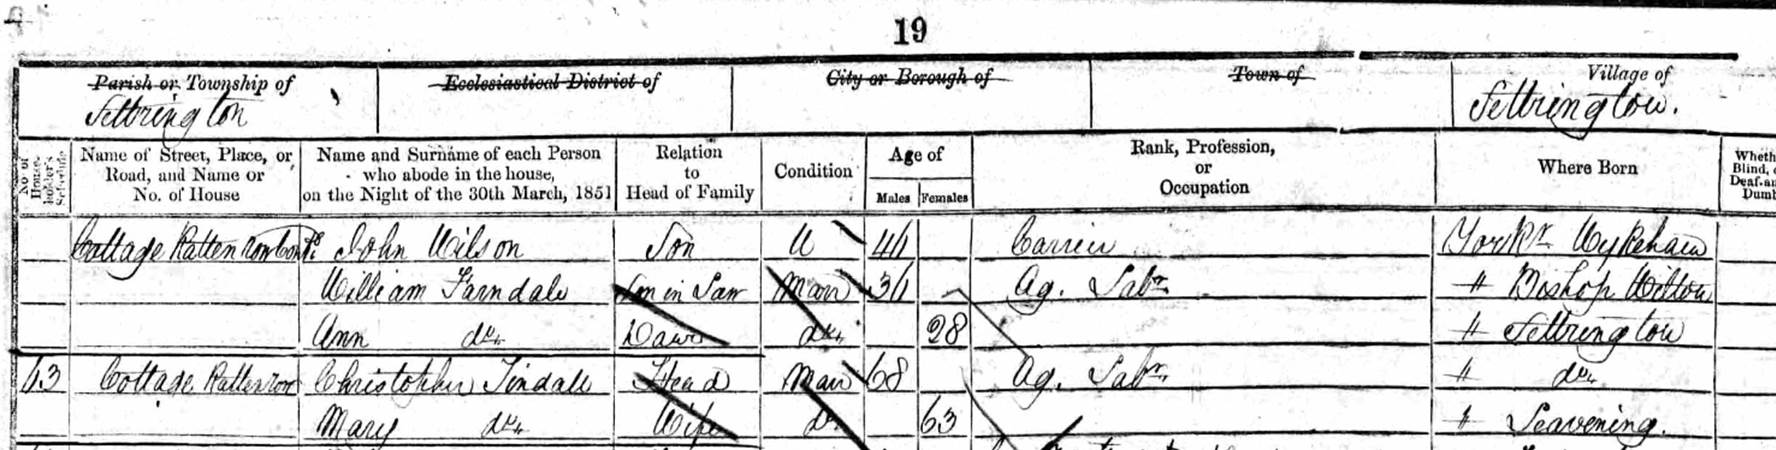 19
Parish or Township of
Settrington
Ecclesiastical District of
City or Borough of
Town of
Village of
Settrington.
No. of House-holder's Schedule
Name of Street, Place, or Road, and Name or No. of House
Name and Surname of each Person who abode in the house, on the Night of the 30th March, 1851
Relation to Head of Family
Condition
Age of
Males Females
Rank, Profession, or Occupation
Where Born
Cottage Ratten row John Wilson Son U Carrier Yorks Wykeham
William Farndale Son in Law Mar 36 Ag. Labr " Bishop Wilton
Ann do Daur do 28 " Settrington
63 Cottage Ratten row Christopher Tindale Head Mar 68 Ag. Labr " do
Mary do Wife do 63 " Leavening.